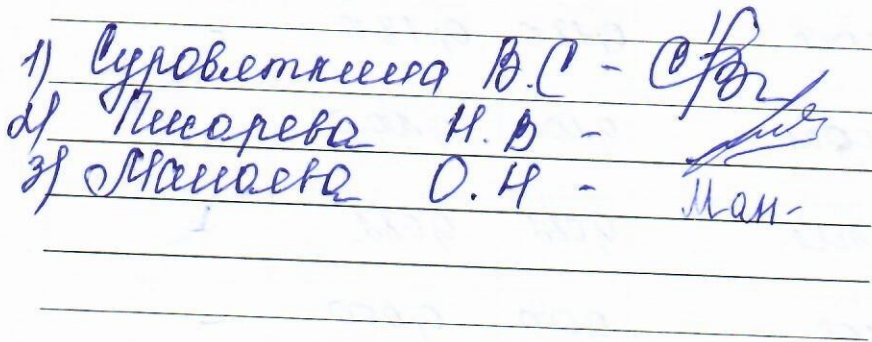 1) Суровяткина В.С -
2) Писарева Н.В -
3) Манаева О.Н - Ман-